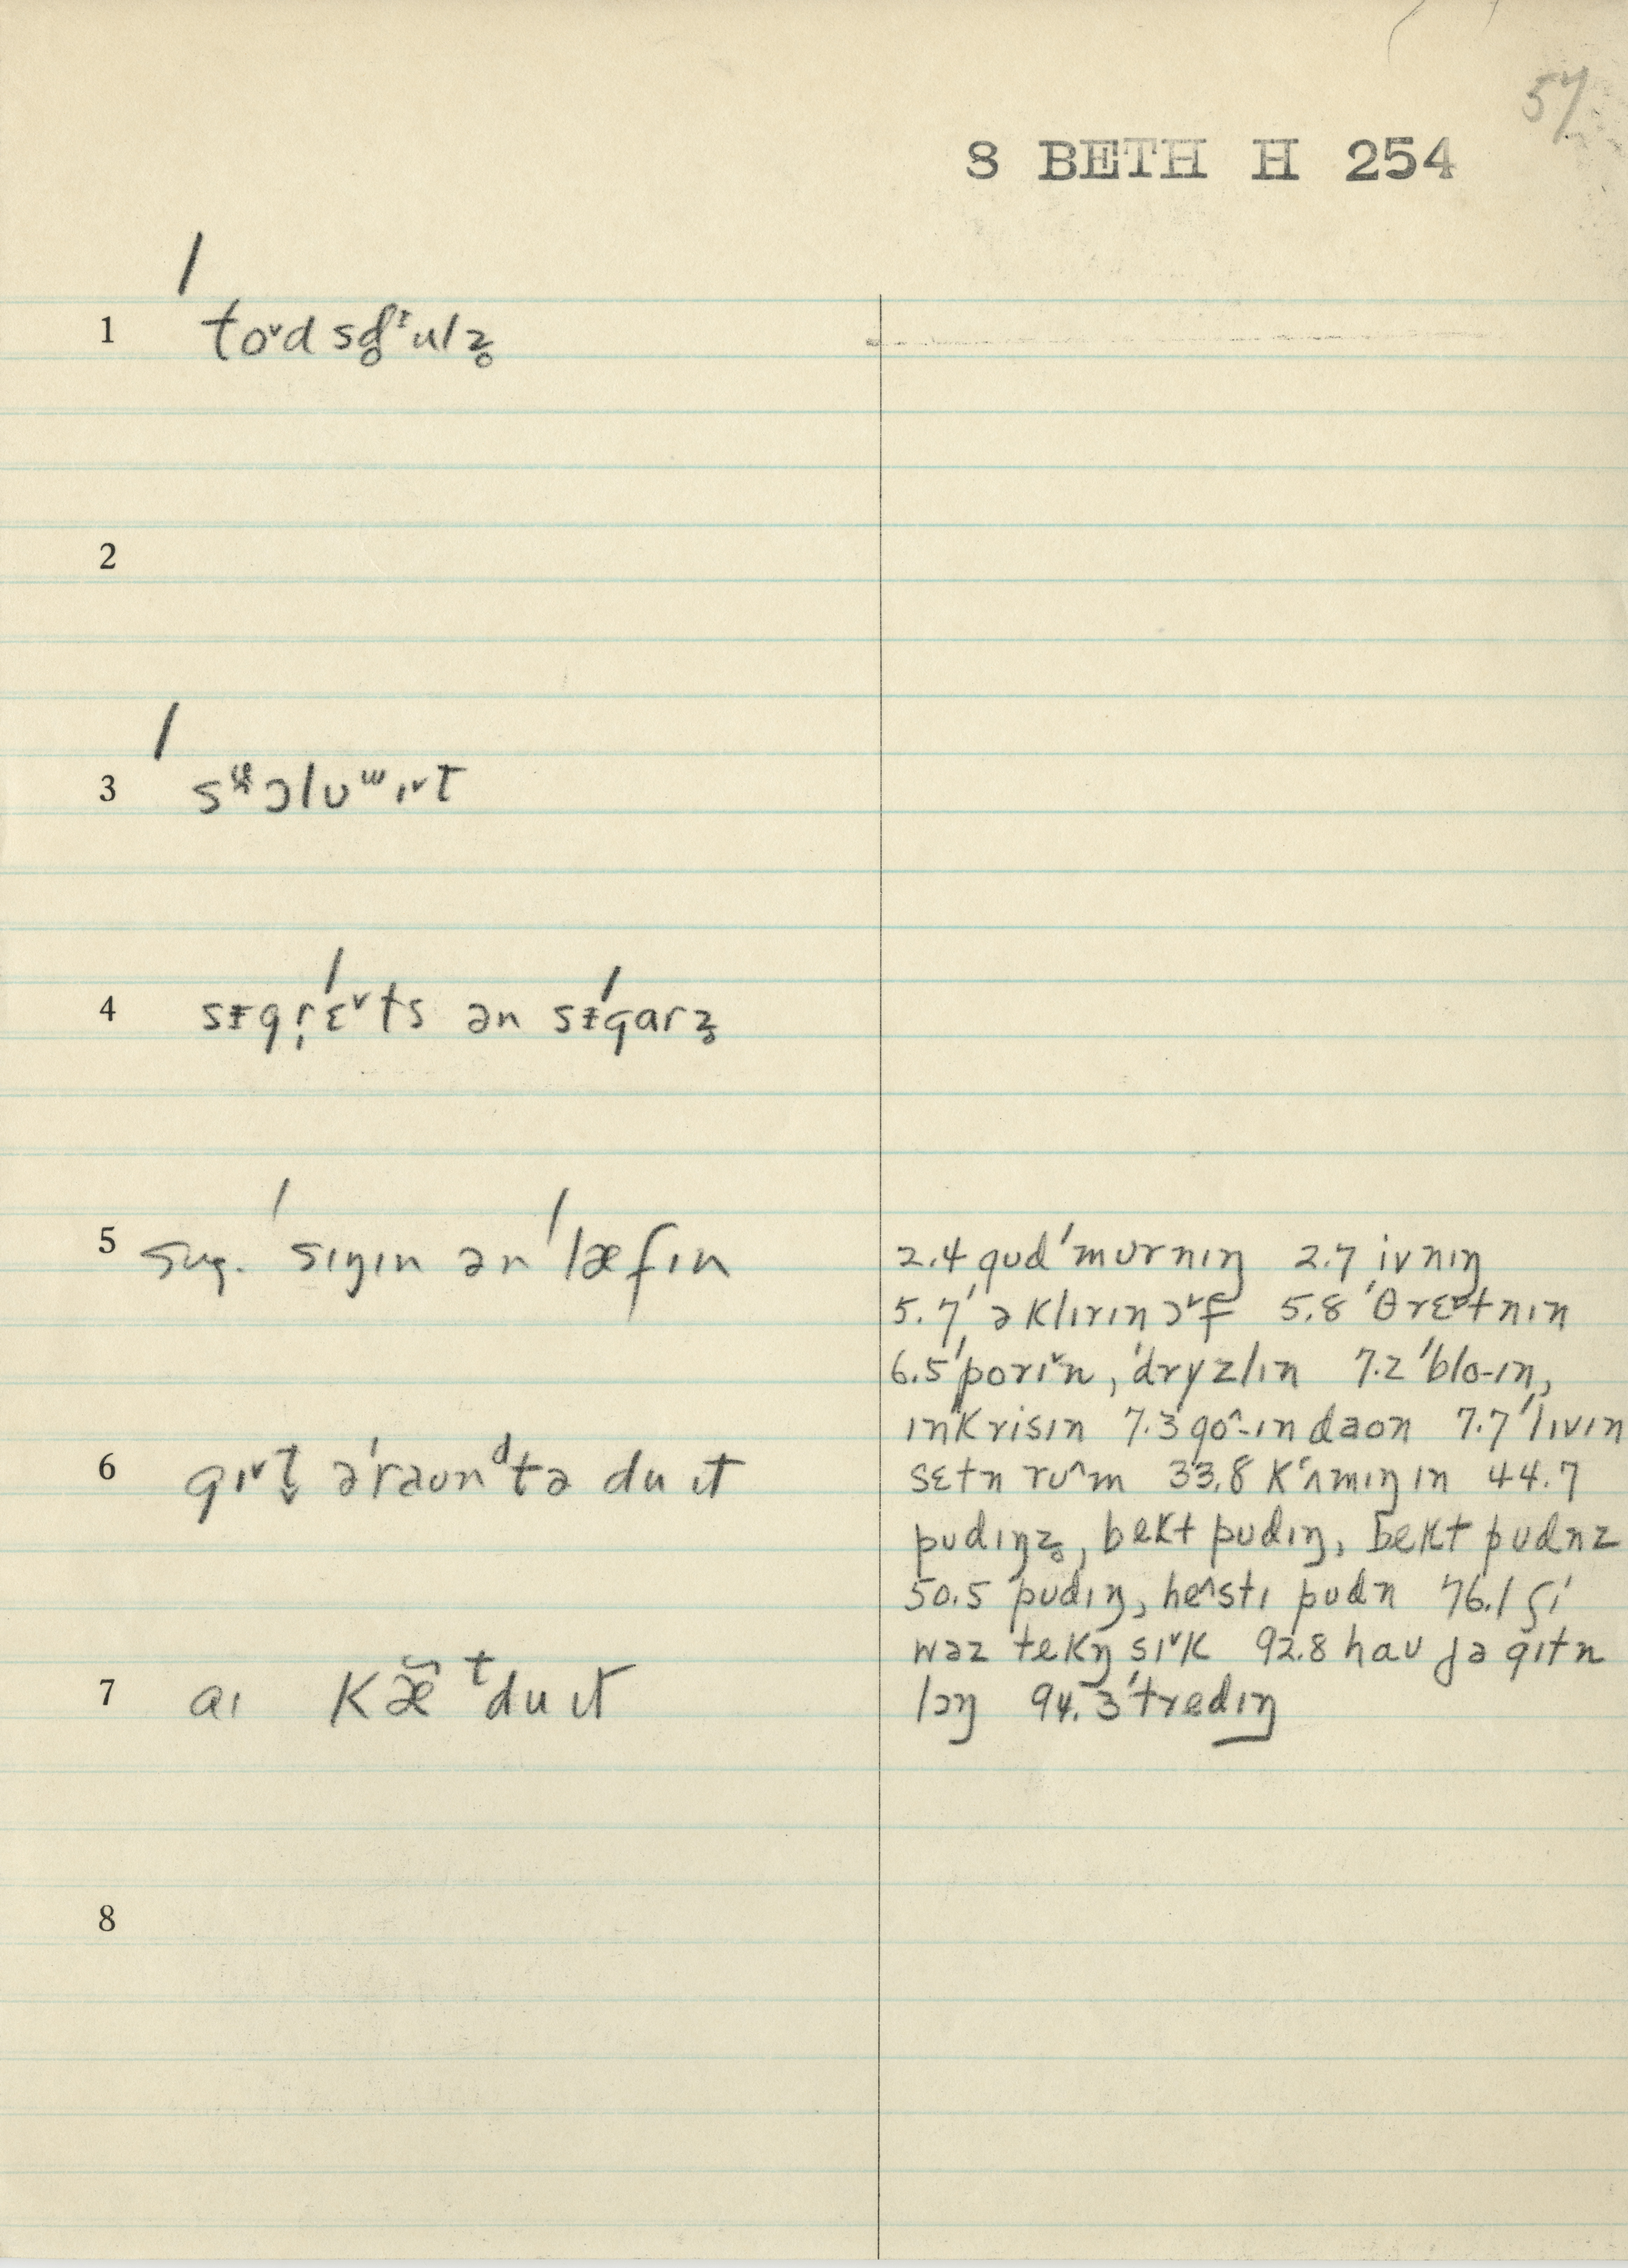 57
8 BETH H 254
1 ˈto˅d sg̥ᵻulz̥
2
3
4 sᵻgr̹ˈɛ˅ts ən sˈᵻgarz̥
5 sug. ˈsɪŋɪn ən ˈlæfɪn
6 gɪ˅t̬ əˈraunᵈtə du ɪt
7 aɪ kæ̃ ᵗdu ɪt
8
2.4 gud ˈmʊrnɪŋ 2.7 ivnɪŋ
5.7 ˈəklɪrɪn ɔ˅f 5.8 ˈθrɛ˅tnɪn
6.5 ˈporɪ˅n, ˈdryzlɪn 7.2 ˈblo-ɪn,
ɪnˈkrisɪn 7.3 go^-ɪn daon 7.7 ˈlɪvɪn
sɛtn ru^m 33.8 kᶺmɪŋ ɪn 44.7
pudɪŋz̥, bekt pudɪŋ, bekt pudnz
50.5 pudɪŋ, he^stɪ pudn 76.1 ʃi
wəz tekŋ sɪ˅k 92.8 hau jə gɪtn
lɔŋ 94.3 ˈtredɪŋ